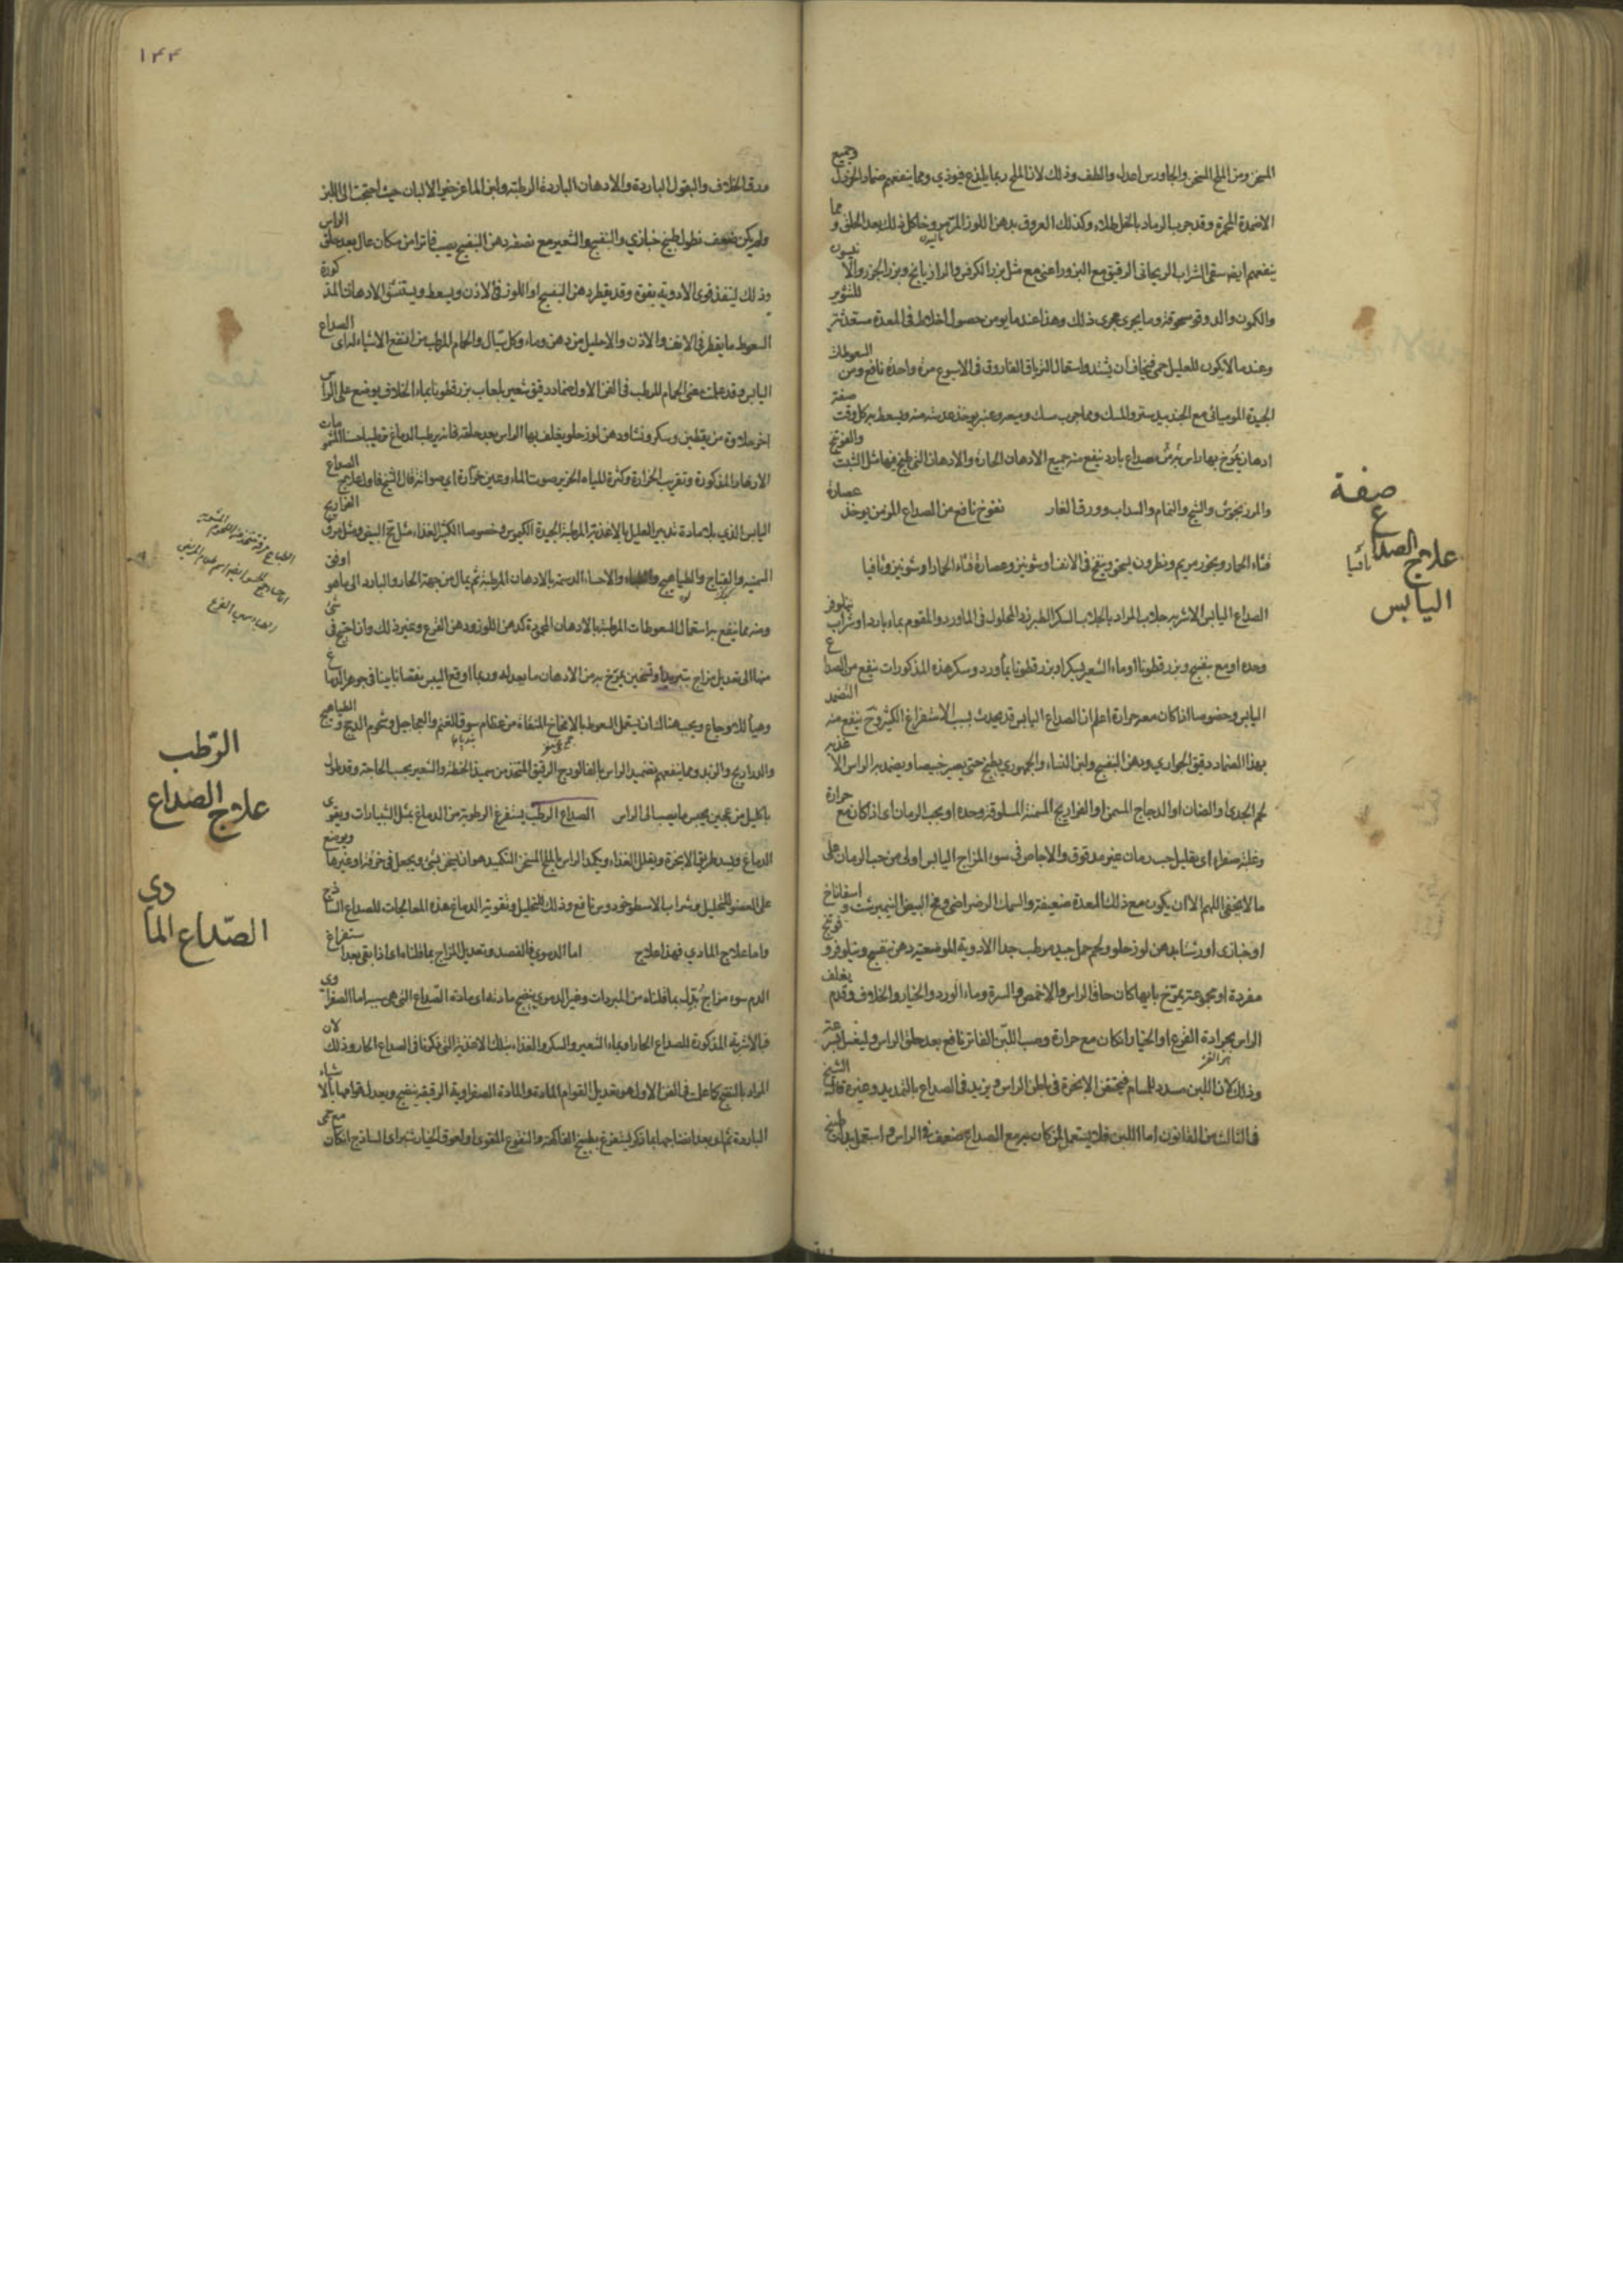 المسخن ومن الملح المسخن والجاورس اعدل والطف وذلك لان الملح ربما يلذع فيوذي ومما ينفعهم ضماد الخردل وجميع
الاضمدة المحمرة وقد جرب الرماد بالخل طلاء وكذلك العروق بدهن اللوز المر وخل كل ذلك بعد الحلق و مما
ينفعهم ايضا سقي الشراب الريحاني الرقيق مع البزور اعني مع مثل بزر الكرفس والرازيانج وبزر الجزر والانيسون
والكمون والدوقو وما يجري مجرى ذلك وهذا عندما يومن حصول اخلاط في المعدة مستعدة للثوير
وعندما لا يكون للعليل حمى فيخاف ان يشتد واستعمال الترياق الفاروق في الاسبوع مرة واحدة نافع ومن السعوطات
الجيدة الموميائي مع الجندبيدستر والمسك ومما جرب سك وعنبر يوخذ عدسة منه ويسعط به كل وقت صفة
ادهان يمرخ بها راس من به صداع بارد ينفع منه جميع الادهان الحارة والادهان التي طبخ فيها مثل الشبت والفوتنج
والمرزنجوش والشيح والنمام والسداب وورق الغار نفوخ نافع من الصداع المزمن يوخذ عصارة
قثاء الحمار وبخور مريم ونطرون يسحق وينفخ في الانف او شونيز وعصارة قثاء الحمار او شونيز وثافيا
الصداع اليابس الاشربه جلاب المراد بالجلاب السكر الطبرزد المحلول في الماورد والمقوم بماء بارد او شراب نيلوفر
وحده او مع بنفسج وبزر قطونا او ماء الشعير بسكر او بزر قطونا بماورد وسكر هذه المذكورات ينفع من الصداع
اليابس وخصوصا اذا كان معه حرارة اعلم ان الصداع اليابس قد يحدث بسبب الاستفراغ الكثير وح ينفع منه التضمد
بهذا الضماد دقيق الحواري ودهن البنفسج ولبن النساء والجمهوري يطبخ حتى يصير خبيصا ويضمد به الراس الاغذيه
لحم الجدي او الضان او الدجاج المسمن او الفراريج المسمنة المسلوقة وحده او بحب الرمان اي اذا كان مع حرارة
وغلبة صفراء اي بقليل حب رمان غير مدقوق والاجاص في سوء المزاج اليابس اولى من حب الرمان على
ما لا يخفى اللهم الا ان يكون مع ذلك المعدة ضعيفة والسمك الرضراضي ومخ البيض النيمبرشت و اسفاناخ
او خبازي او رشتا بدهن لوز حلو ولحم حمل جيد مرطب جدا الادوية الموضعيه دهن بنفسج ونيلوفر و
مفردة او مجموعة يمرخ بايها كان حافا الراس والاخمص والسرة وماء الورد والخيار والخلاف وقدم يغلف
الراس بجرادة القرع او الخيار وان كان مع حرارة وصب اللبن الفاتر نافع بعد حلق الراس وليغسل
وذلك لان اللبن يسدد المسام فيحتقن الابخرة في باطن الراس ويزيد في الصداع بالتمديد وغيره قال الشيخ
في الثالث من القانون اما اللبن فلا يستعمل ان كان مع الصداع ضعف في الراس واستعمل بدله طبيخ
صفة
علاج الصداع
اليابس
ثافيا
١٤٤
ورق الخلاف والبقول الباردة والادهان الباردة الرطبة ولبن الماعز خير الالبان حيث احتجت الى اللبن
ولم يكن ضعف نطول طبيخ خبازي والبنفسج والشعير مع نصفه دهن البنفسج يصب فاترا من مكان عال بعد حلق الراس
وذلك لينفذ قوى الادوية بقوة وقد يقطر دهن البنفسج او اللوز في الاذن ويسعط ويستنشق الادهان المذكورة
السعوط ما يقطر في الانف والاذن والاحليل من دهن وماء وكل سيال والحمام المرطب من انفع الاشياء الصداع
اليابس وقد علمت معنى الحمام المرطب في الفن الاول ضماد دقيق شعير بلعاب بزر قطونا بماء الخلاف يوضع على الراس
اخر حلاوة من يقطين وسكر ونشا ودهن لوز حلو يغلف بها الراس بعد حلقه فانه يرطب الدماغ ترطيبا حسنا
الادهان المذكورة وتقريب الخرارة وكثرة المياه الخرير صوت الماء وعين خرارة اي صواتة قال الشيخ فاول علاج الصداع
اليابس الذي بلا مادة تدبير العليل بالاغذية المرطبة الجيدة الكيموس وخصوصا الكثيرة الغذاء مثل مح البيض ومثل مرق الفراريج
السمينه والقباج والطياهيج والاحساء الدسمة بالادهان المرطبة ثم يمال من جهة الحار والبارد الى ما هو اوفق
ومنه مما ينفع به استعمال السعوطات المرطبة بالادهان المحمودة كدهن اللوز ودهن القرع وغير ذلك وان احتيج في شي
منها الى تعديل مزاج بتبريد او تسخين يمزج به من الادهان ما يعدله وربما اوقع اليبس نقصانا بينا في جوهر الدماغ
وهيأ للاوجاع ويجب هنالك ان يستعمل السعوط بالامخاخ المنقاة من عظام سوق الغنم والعجاجيل وشحوم الدجج و الطياهيج
والدراريج والزبد ومما ينفعهم تضميد الراس بالفالوذج الرقيق المتخذ من سميذ الحنطة والشعير بحب الحاجة وقد طول
باكليل من عجين يحبس ما يصب الى الراس الصداع الرطب يستفرغ الرطوبة من الدماغ بمثل الشبيارات ويقوى
الدماغ ويسد طريق الابخرة ويقلل الغذاء ويكمد الراس بالملح المسخن التكميد هو ان يسخن شئ ويجعل في خرقة او غيرها ويوضع
على العضو للتحليل وشراب الاسطوخودوس نافع وذلك للتحليل وتقوية الدماغ هذه المعالجات للصداع الساذج
واما علاج المادي فهذا علاج اما الدموي فالفصد وتعديل المزاج بما قلناه اي اذا بقي بعد استفراغ
الدم سوء مزاج بدل بما قلناه من المبردات وغير الدموي ينضج مادته اي مادة الصداع التي هي سببه اما الصفراوي
فبالاشربة المذكورة للصداع الحار او بماء الشعير والسكر والغذاء بتلك الاغذية التي ذكرنا في الصداع الحار وذلك لان
المراد بالنضج كما علمت في الفن الاول هو تعديل القوام المادة والمادة الصفراوية الرقيقة ينضج ويعدل قوامها بالاشياء
الباردة ثم اي بعد انضاجها بما ذكر يستفرغ بطبيخ الفاكهة والنقوع المقوى او لعوق الخيارشنبر اي الساذج ان كان مع حمى
الرطب
علاج الصداع
الصداع المادي